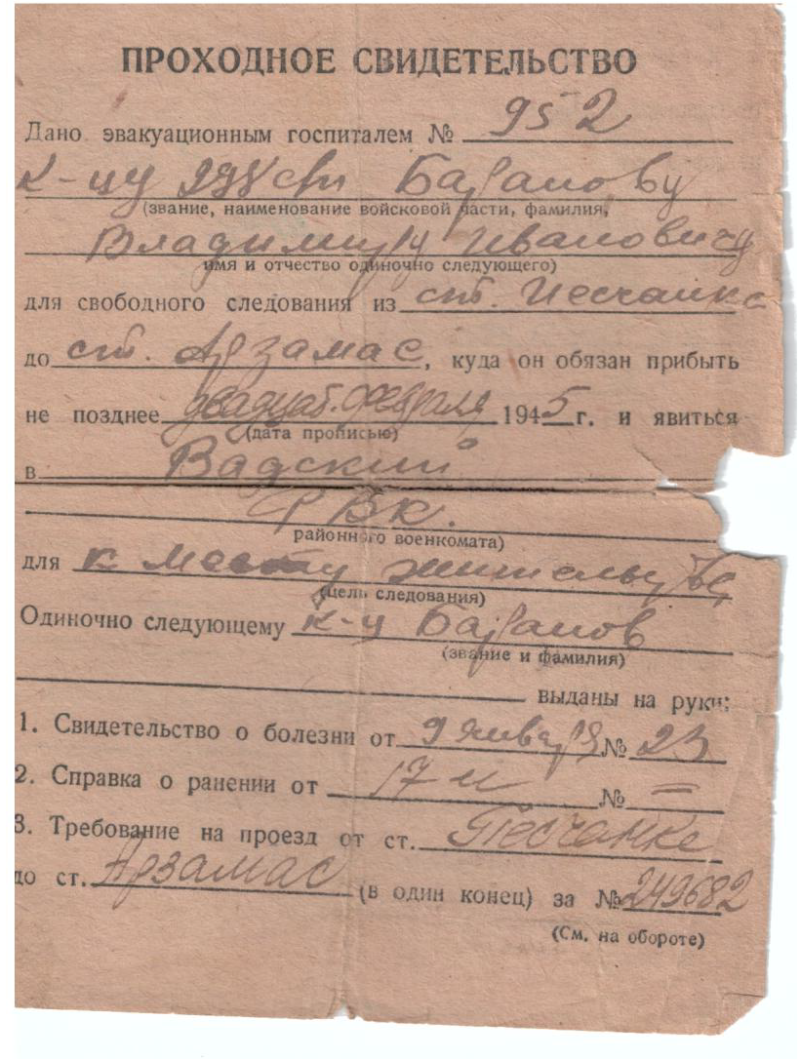 ПРОХОДНОЕ СВИДЕТЕЛЬСТВО
Дано эвакуационным госпиталем № 952
К-цу Баранову
(звание, наименование войсковой части, фамилия,
Владимиру Ивановичу
имя и отчество одиночно следующего)
для свободного следования из ст. Песчанка
до ст. Арзамас, куда он обязан прибыть
не позднее двадцат. февраля 1945 г. и явиться
(дата прописью)
в Вадский
РВК.
районного военкомата)
для к месту жительства
(цель следования)
Одиночно следующему К-ц Баранов
(звание и фамилия)
выданы на руки:
1. Свидетельство о болезни от 9 января № 23
2. Справка о ранении от № =
3. Требование на проезд от ст. Песчанке
до ст. Арзамас (в один конец) за № 249682
(См. на обороте)